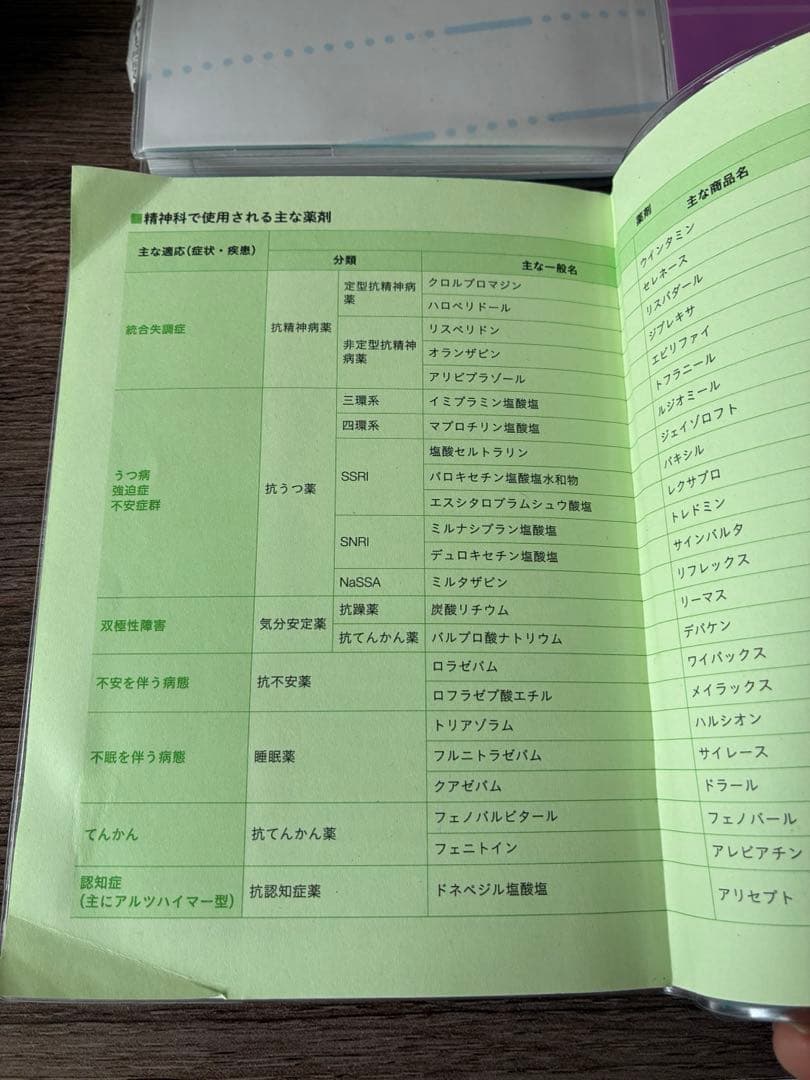 ■精神科で使用される主な薬剤
主な適応(症状・疾患)
分類
主な一般名
薬剤
主な商品名
統合失調症
抗精神病薬
定型抗精神病
薬
クロルプロマジン
ウインタミン
ハロペリドール
セレネース
非定型抗精神
病薬
リスペリドン
リスパダール
オランザピン
ジプレキサ
アリピプラゾール
エビリファイ
うつ病
強迫症
不安症群
抗うつ薬
三環系
イミプラミン塩酸塩
トフラニール
四環系
マプロチリン塩酸塩
ルジオミール
SSRI
塩酸セルトラリン
ジェイゾロフト
パロキセチン塩酸塩水和物
パキシル
エスシタロプラムシュウ酸塩
レクサプロ
SNRI
ミルナシプラン塩酸塩
トレドミン
デュロキセチン塩酸塩
サインバルタ
NaSSA
ミルタザピン
リフレックス
双極性障害
気分安定薬
抗躁薬
炭酸リチウム
リーマス
抗てんかん薬
バルプロ酸ナトリウム
デパケン
不安を伴う病態
抗不安薬
ロラゼパム
ワイパックス
ロフラゼプ酸エチル
メイラックス
不眠を伴う病態
睡眠薬
トリアゾラム
ハルシオン
フルニトラゼパム
サイレース
クアゼパム
ドラール
てんかん
抗てんかん薬
フェノバルビタール
フェノバール
フェニトイン
アレビアチン
認知症
(主にアルツハイマー型)
抗認知症薬
ドネペジル塩酸塩
アリセプト